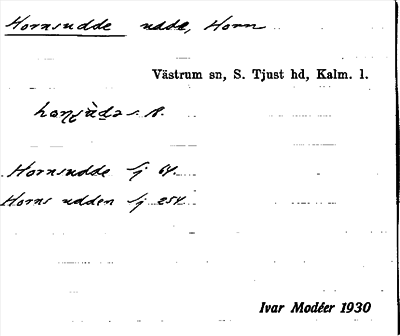 Hornsudde udde, Horn
Västrum sn, S. Tjust hd, Kalm. l.
Hornsudde Sj 64.
Horns udden Sj 254.
Ivar Modéer 1930